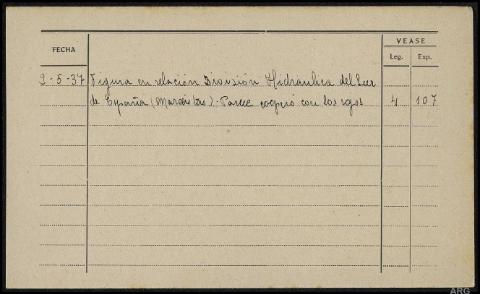 VEASE
FECHA
Leg. Exp.
9-5-37 Figura en relación División Hidraulica del Sur
de España (Marxistas). Parece cooperó con los rojos 4 107
ARG